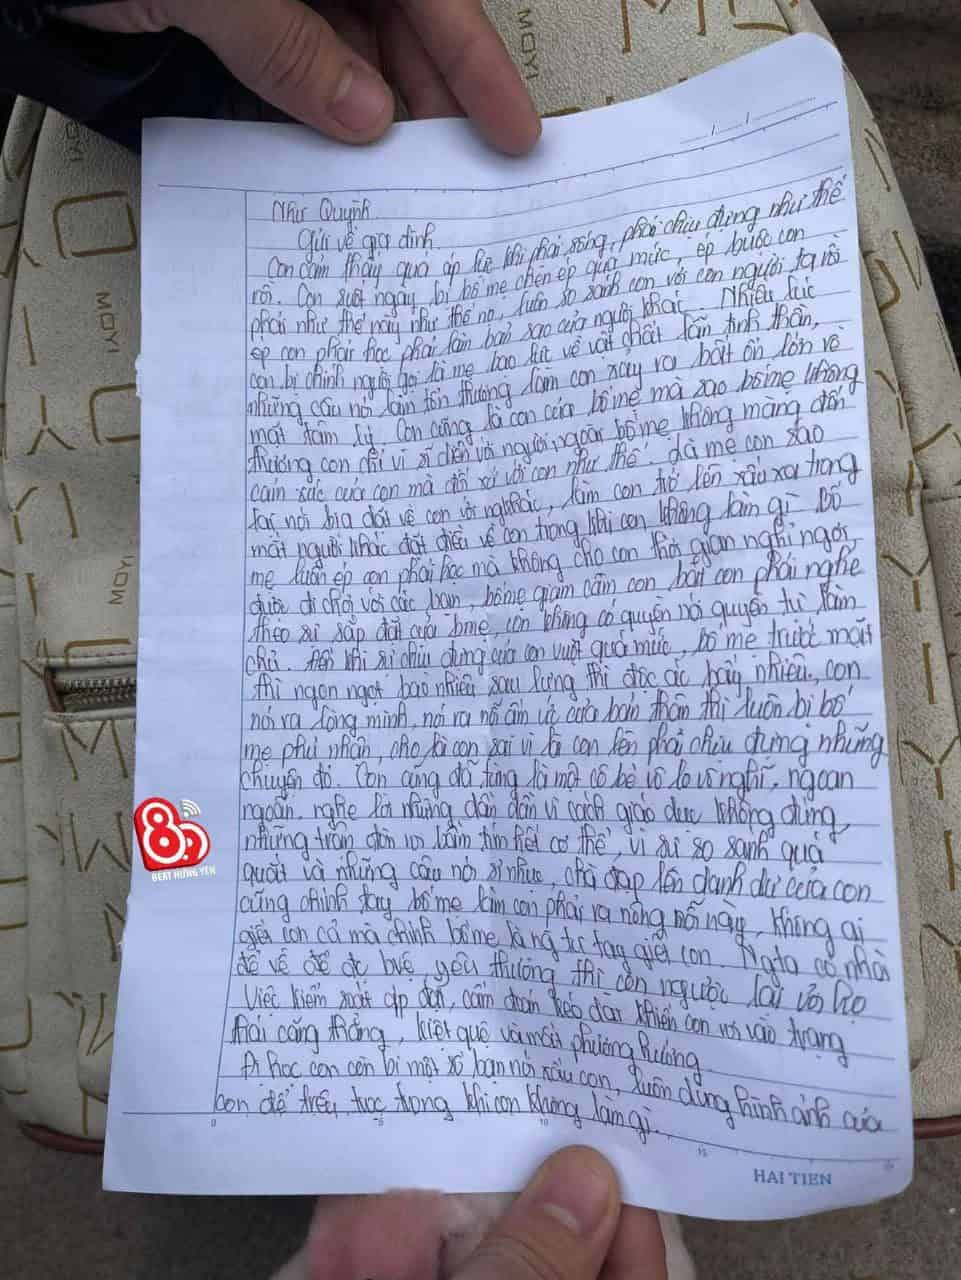 MOYI
MOYI
MOYI
Như Quỳnh
Gửi về gia đình.
Con cảm thấy quá áp lực khi phải sống, phải chịu đựng như thế
rồi. Con suốt ngày bị bố mẹ chèn ép quá mức, ép buộc con
phải như thế này như thế nọ, luôn so sánh con với con người ta rồi
ép con phải học phải làm bản sao của người khác. Nhiều lúc
con bị chính người gọi là mẹ bạo lực về vật chất lẫn tinh thần,
những câu nói làm tổn thương làm con xảy ra bất ổn lớn về
mặt tâm lý. Con cũng là con của bố mẹ mà sao bố mẹ không
thương con chỉ vì sĩ diện với người ngoài bố mẹ không màng đến
cảm xúc của con mà đối xử với con như thế. Là mẹ con sao
lại nói bịa đặt về con với ng khác, làm con trở lên xấu xa trong
mắt người khác đặt điều về con trong khi con không làm gì. Bố
mẹ luôn ép con phải học mà không cho con thời gian nghỉ ngơi,
được đi chơi với các bạn, bố mẹ giam cầm con bắt con phải nghe
theo sự sắp đặt của bmẹ, con không có quyền nói quyền tự làm
chủ. Đến khi sự chịu đựng của con vượt quá mức, bố mẹ trước mặt
thì ngon ngọt bao nhiêu sau lưng thì độc ác bấy nhiêu, con
nói ra lòng mình, nói ra nỗi ấm ức của bản thân thì luôn bị bố
mẹ phủ nhận, cho là con sai vì là con lên phải chịu đựng những
chuyện đó. Con cũng đã từng là một cô bé vô lo vô nghĩ, ngoan
ngoãn, nghe lời nhưng dần dần vì cách giáo dục không đúng,
những trận đòn roi bầm tím hết cơ thể, vì sự so sanh quá
quắt và những câu nói sỉ nhục, chà đạp lên danh dự của con
cũng chính tay bố mẹ làm con phải ra nông nỗi này. Không ai
giết con cả mà chính bố mẹ là ng tự tay giết con. Ngta có nhà
để về để đc bvệ, yêu thương thì con ngược lại với họ
Việc kiểm soát áp đặt, cấm đoán kéo dài khiến con rơi vào trạng
thái căng thẳng, kiệt quệ và mất phương hướng
Đi học con còn bị một số bạn nói xấu con, luôn dùng hình ảnh của
con để trêu trọc trong khi con không làm gì.
0 5 10 15
HAI TIEN
89
BEAT HƯNG YÊN